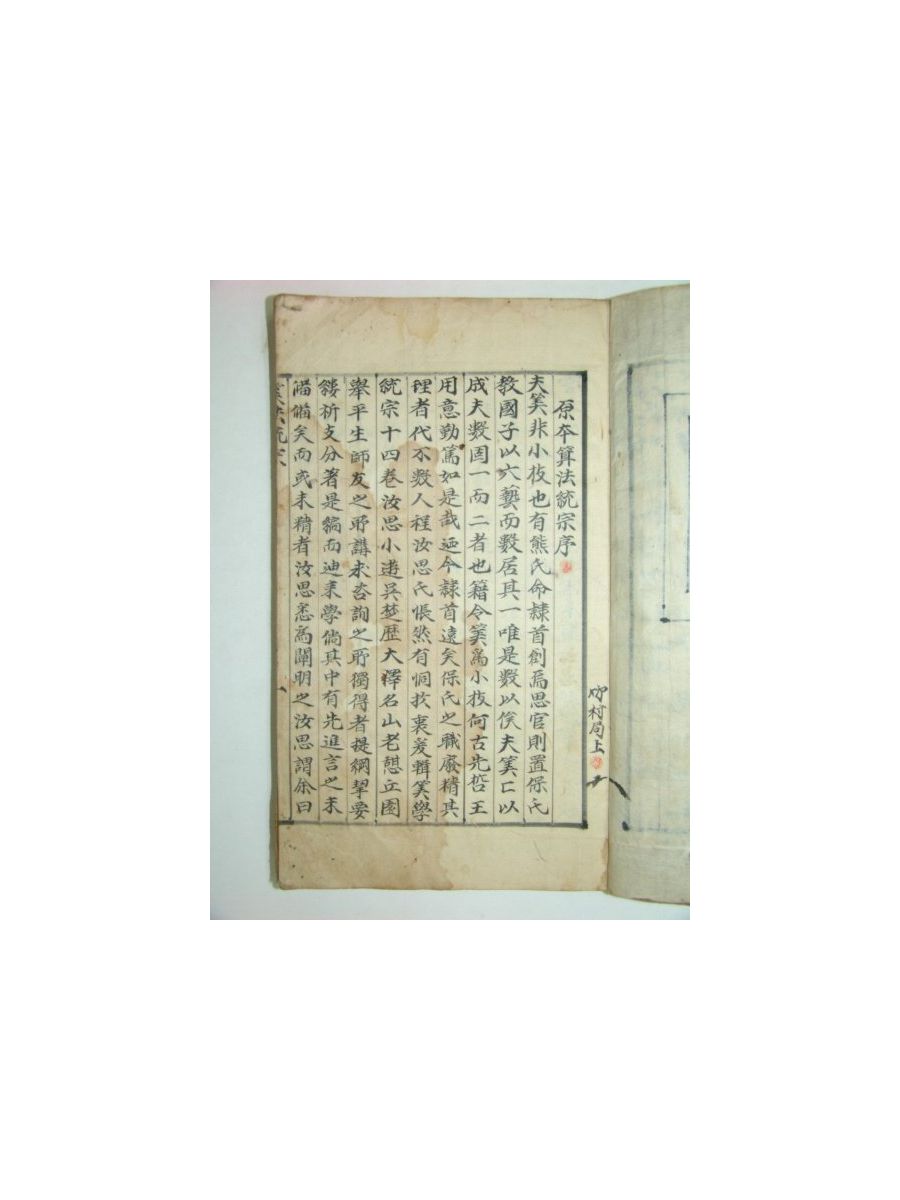 原本算法統宗序
夫筭非小技也有熊氏命隸首創焉思官則置保氏
教國子以六藝而數居其一唯是數以俟夫筭匚以
成夫數固一而二者也籍令筭爲小技何古先哲王
用意勤篤如是哉迺今隸首遠矣保氏之職廢精其
理者代不數人程汝思氏悵然有恫扵衷爰輯筭學
統宗十四卷汝思小遊吳楚歷大澤名山老憇丘園
舉平生師友之所講求咨詢之所獨得者提綱挈要
縷析支分著是編而迪来學倘其中有先進言之未
備者矣而或未精者汝思悉爲闡明之汝思謂余曰
筭法統宗
村局上